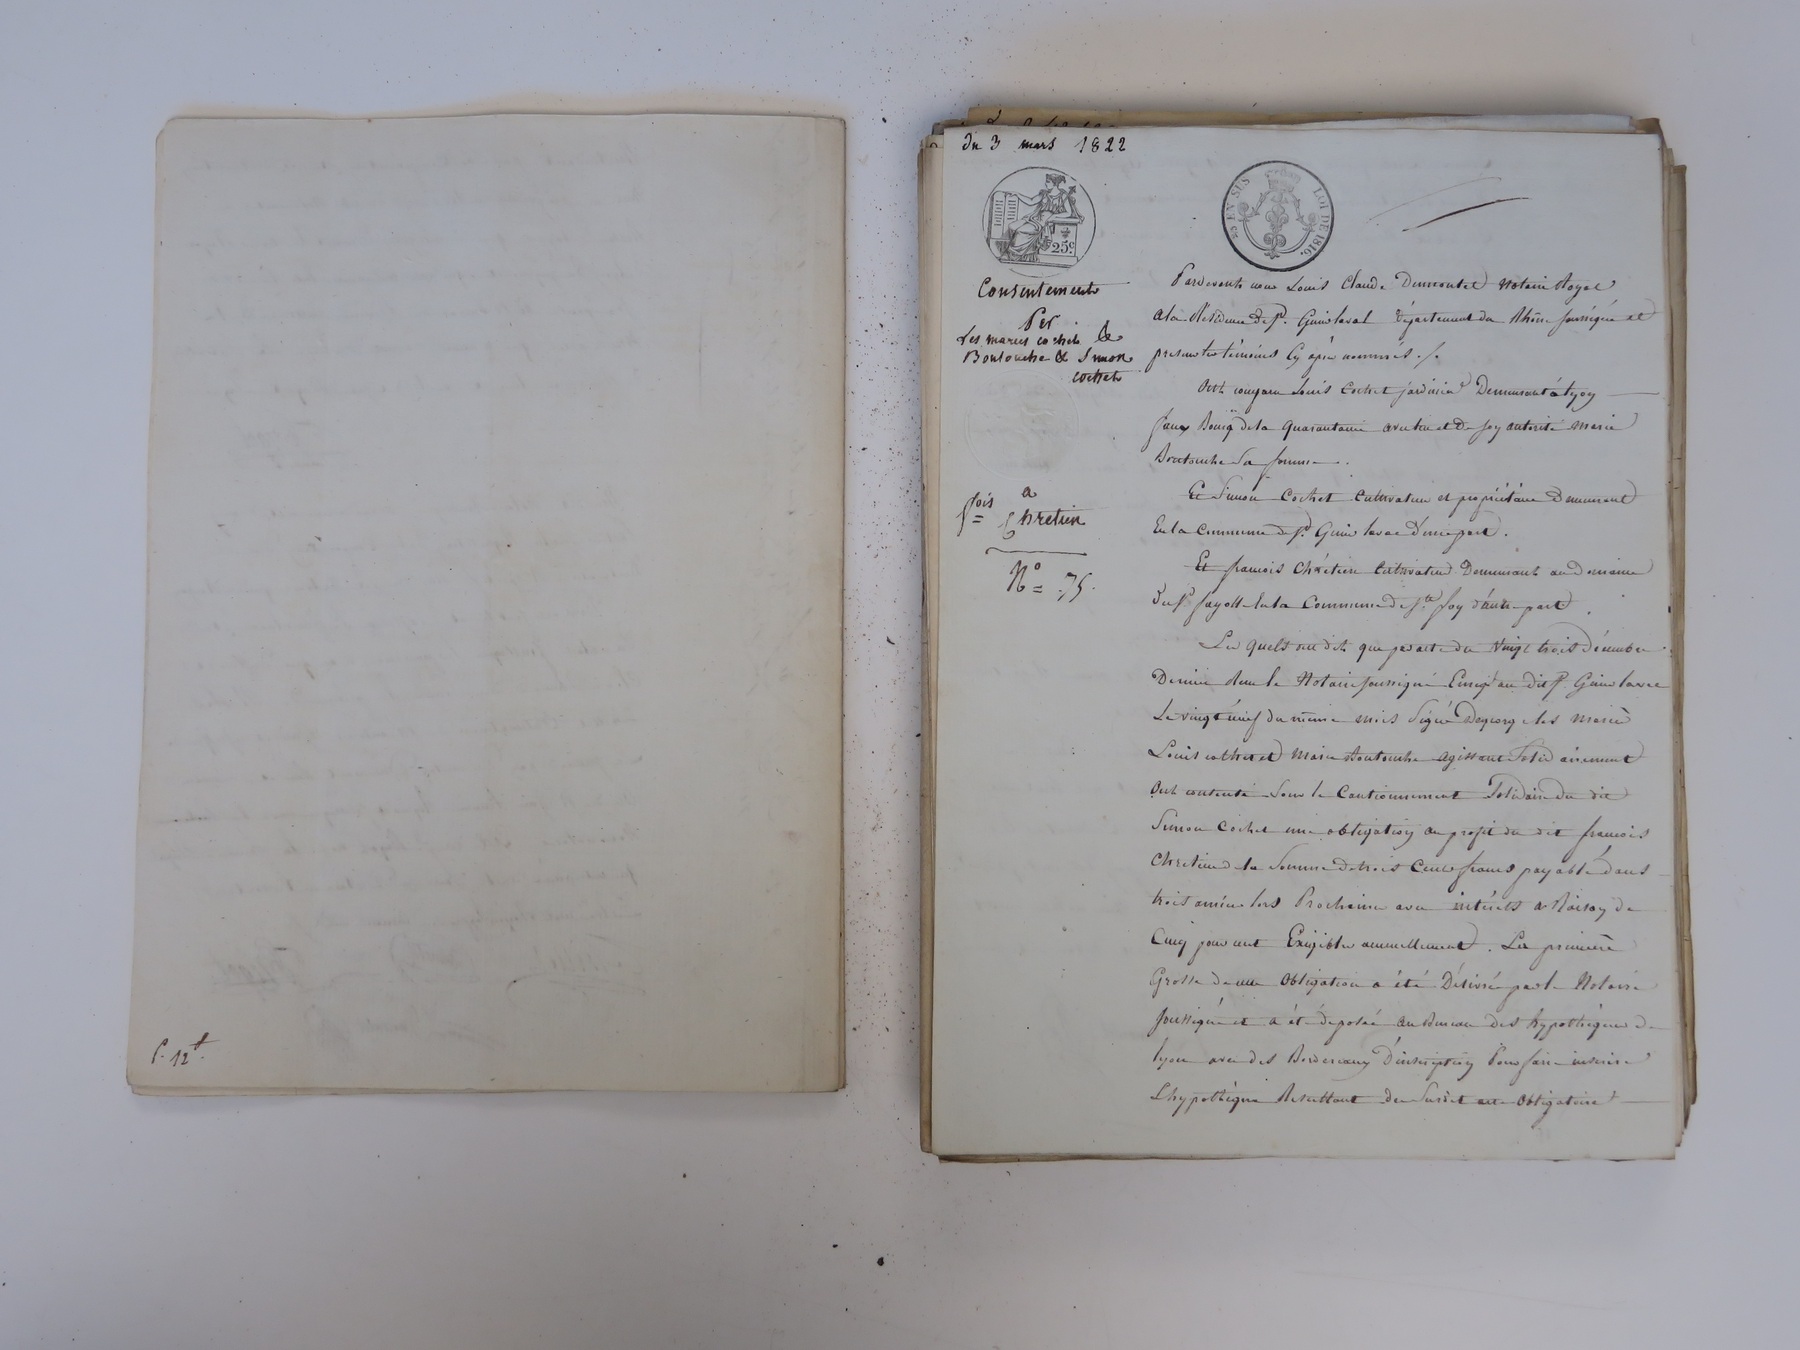 P. 12 f.
du 3 mars 1822
25c.
25 EN SUS LOI DE 1816.
Consentement
Per
Les mariés cochet &
Boutouche & Simon
cochet
a
fois Chretien
N° 75.
Pardevant nous Louis Claude Dumontet Notaire Royal
a la Résidence de St. Genis laval département du Rhône soussigné et
présents les témoins cy après nommés ./.
Ont comparu Louis Cochet jardinier Demeurant à lyon
faux Bourg de la Quarantaine avec lui et de soy autorité marie
Boutouche sa femme.
Et Simon Cochet cultivateur et propriétaire Demeurant
En la commune de St. Genis laval d'une part.
Et françois Chrétien Cultivateur Demeurant au Domaine
du Sr fayolle En la Commune de Ste foy d'autre part.
Les quels ont dit que par acte du vingt trois décembre
Dernier devant le Notaire soussigné Enregtré au dit St. Genis laval
Le vingt neuf du même mois Signé Degeorge les mariés
Louis cochet et Marie Boutouche agissant Solidairement
Ont contenté Sous le Cautionnement Solidaire du dit
Simon Cochet une obligation au profit du dit françois
Chretien de la Somme de trois Cents francs payable dans
trois années lors Prochaines avec intérêts a Raison de
Cinq pour cent Exigibles annuellement. La première
Grosse de cette Obligation a été Délivrée par le Notaire
soussigné et a été déposée au Bureau des hypothèques de
lyon avec des Bordereaux D'inscription Pour faire inscrire
L'hypothèque Resultant du Susdit acte Obligatoire